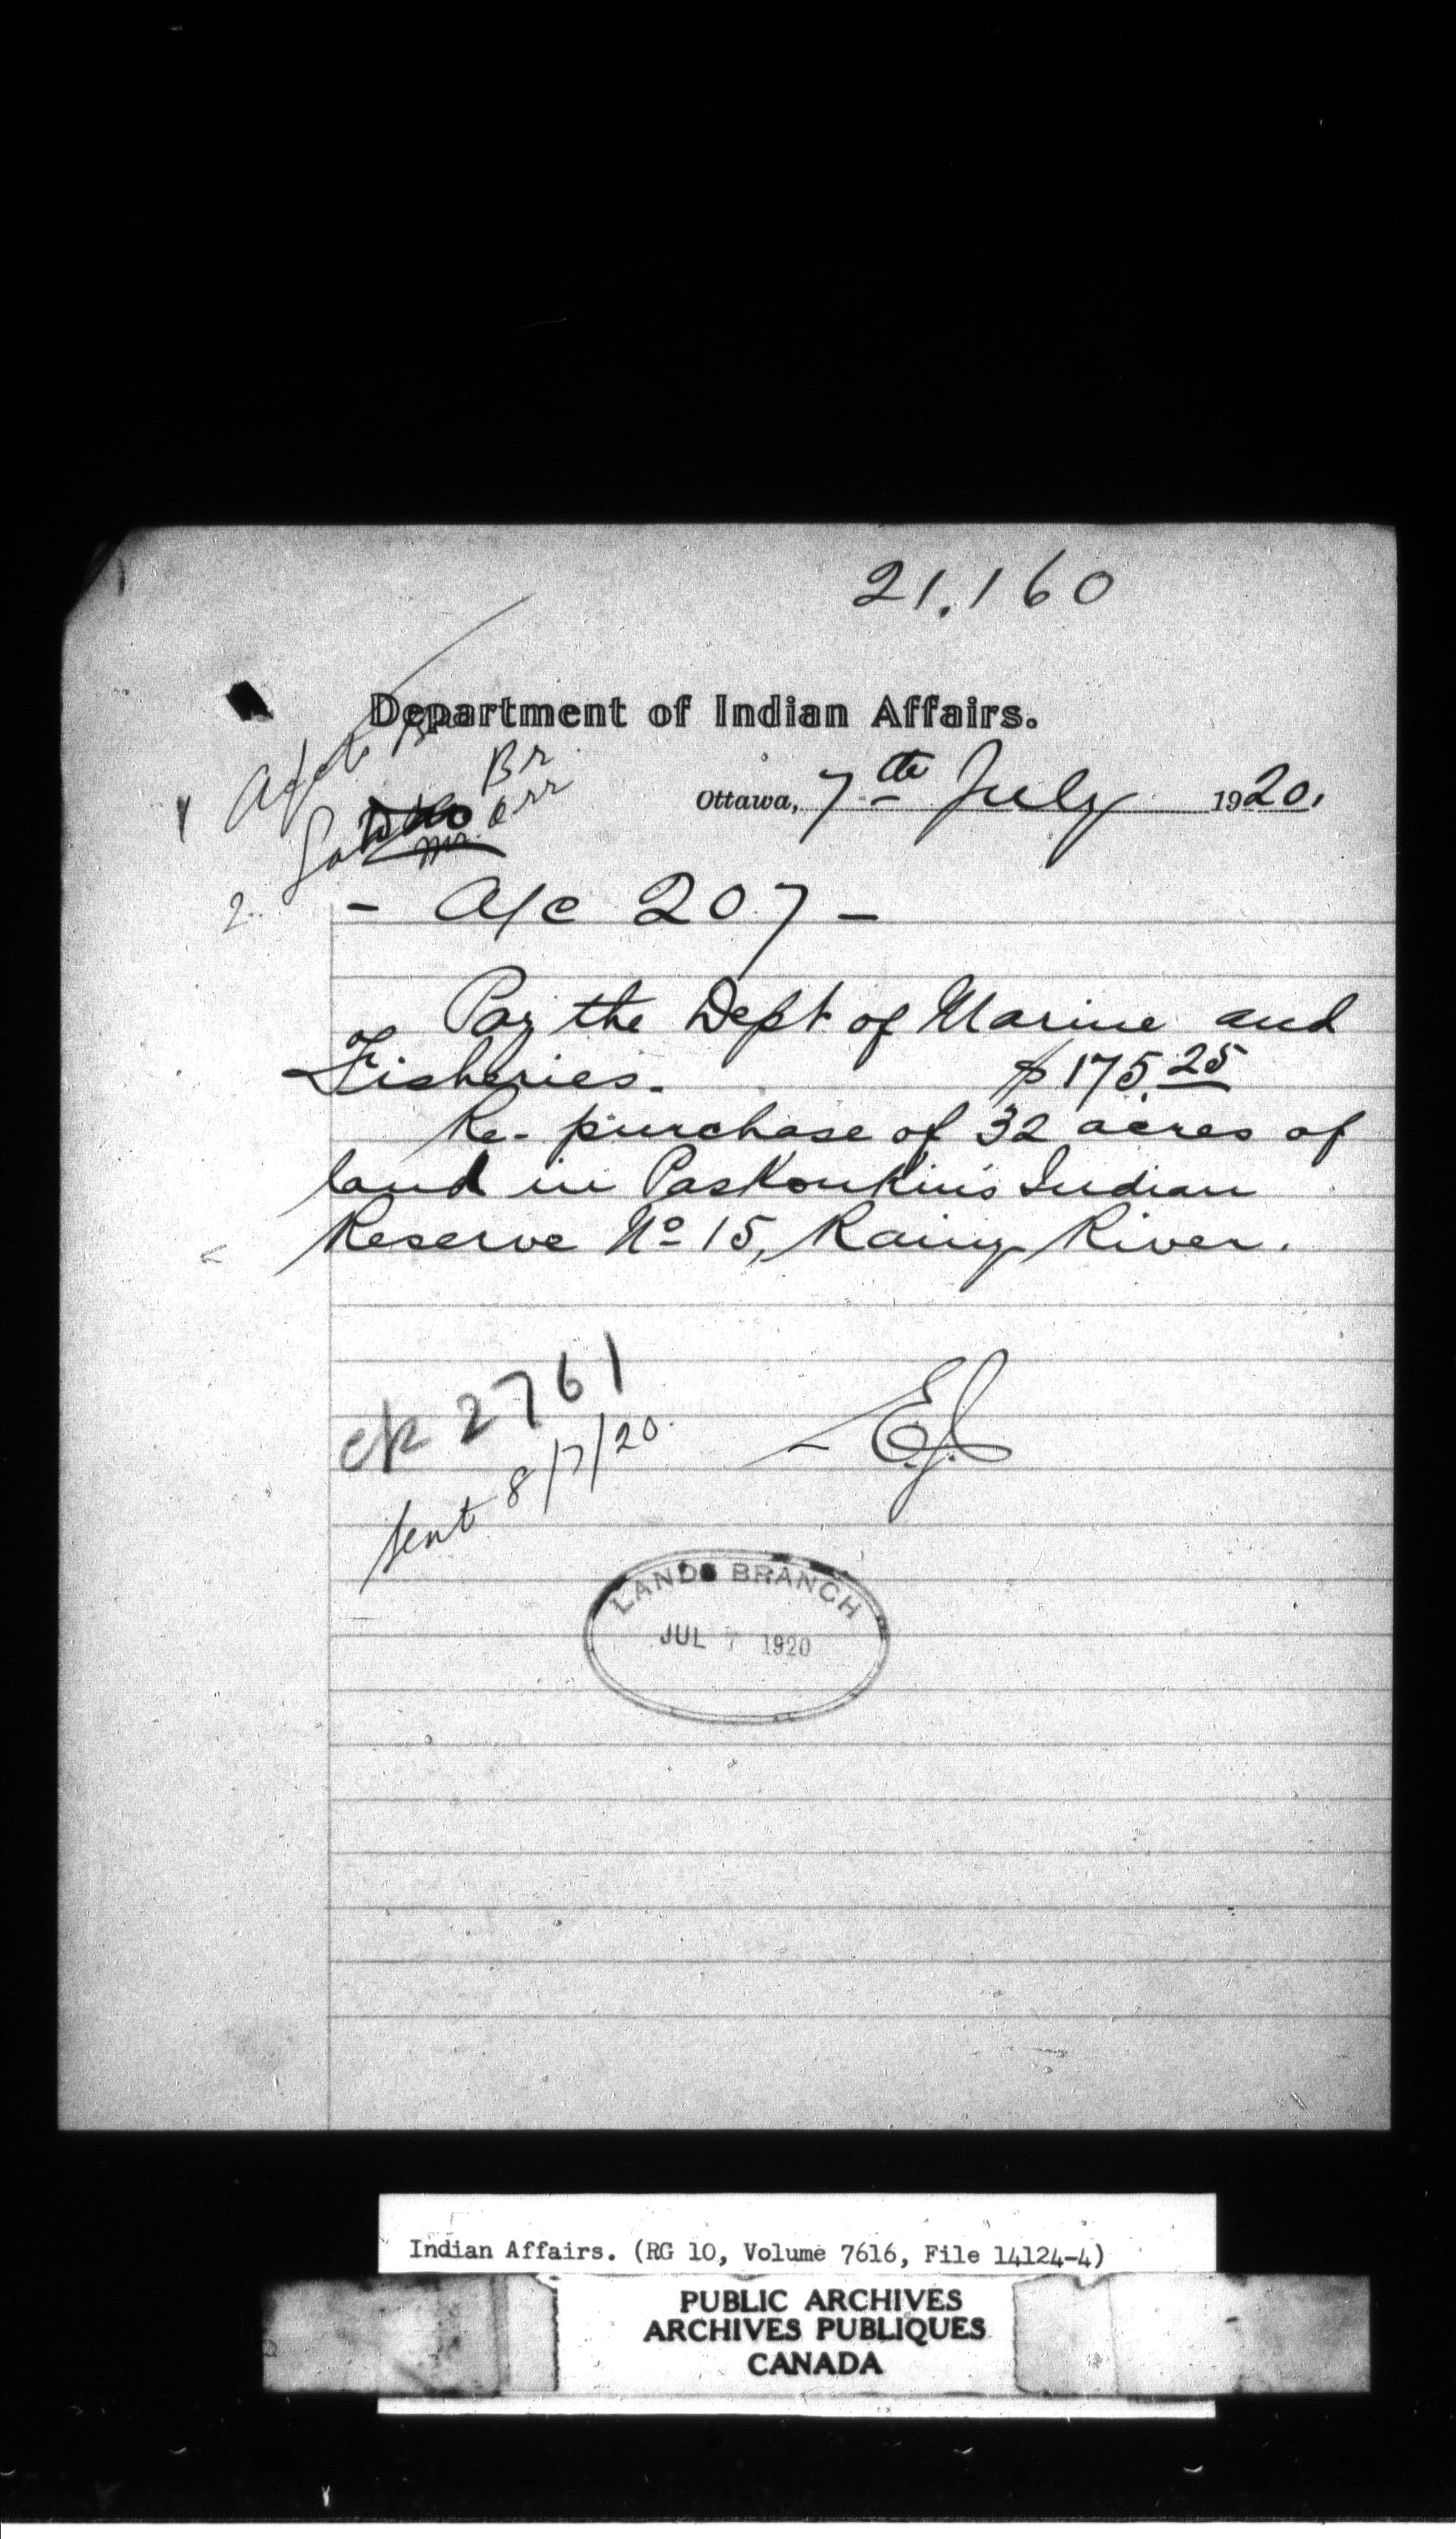 21,160
Department of Indian Affairs.
1 Acct Br
Br
Ottawa, 7th July 1920.
Mr. Orr
2.
- A/c 207 -
Pay the Dept of Marine and
Fisheries. $175.25
Re-purchase of 32 acres of
land in Paskonkin's Indian
Reserve No 15, Rainy River.
ck 2761
sent 8/7/20
LANDS BRANCH
JUL 7 1920
Indian Affairs. (RG 10, Volume 7616, File 14124-4)
PUBLIC ARCHIVES
ARCHIVES PUBLIQUES
CANADA